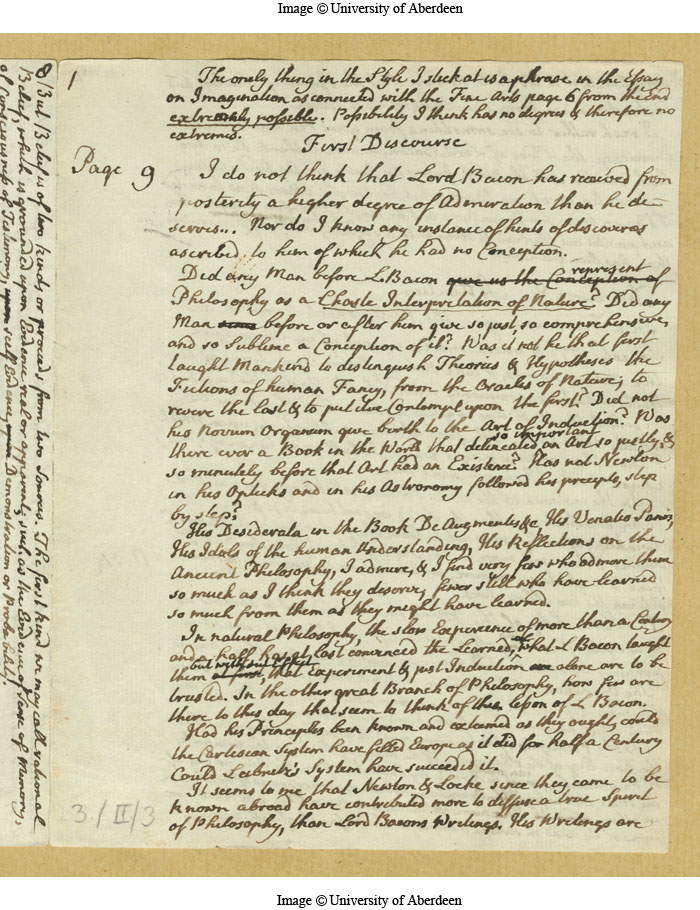 Image © University of Aberdeen
1
The onely thing in the Style I stick at is a phrase in the Essay
on Imagination as connected with the Fine Arts page 6 from the end
extremely possible. Possibility I think has no degrees & therefore no
extremes.
First Discourse
Page 9
I do not think that Lord Bacon has received from
posterity a higher degree of Admiration than he de
serves... Nor do I know any instance of hints of discoveries
ascribed to him of which he had no Conception.
Did any Man before L. Bacon give us the Conception of represent
Philosophy as a Chaste Interpretation of Nature? Did any
Man before or after him give so just, so comprehensive,
and so Sublime a Conception of it? Was it not he that first
taught Mankind to distinguish Theories & Hypotheses the
Fictions of human Fancy, from the Oracles of Nature; to
revere the last & to put due Contempt upon the first? Did not
his Novum Organum give birth to the Art of Induction? Was
there ever a Book in the World that delineated so important an Art so justly, &
so minutely before that Art had an Existence? Has not Newton
in his Opticks and in his Astronomy followed his precepts, step
by step?
His Desiderata in the Book De Augmentis &c, His Venatio Panis,
His Idols of the human Understanding, His Reflections on the
Ancient Philosophy, I admire, & I find very few who admire them
so much as I think they deserve, fewer still who have learned
so much from them as they might have learned.
In natural Philosophy, the slow Experience of more than a Century
and a half has at last convinced the Learned, what L Bacon taught
them at first, but without effect that Experiment & just Induction alone are to be
trusted. In the other great Branch of Philosophy, how few are
there to this day that seem to think of this Lesson of L Bacon.
Had his Principles been known and esteemed as they ought, could
the Cartesian System have filled Europe as it did for half a Century
Could Leibnitz's System have succeeded it.
It seems to me that Newton & Locke since they came to be
known abroad have contributed more to diffuse a true Spirit
of Philosophy, than Lord Bacons Writings. His Writings are
3/II/3
8/ But Belief is of two kinds or proceeds from two Sources. The first kind we may call rational
Belief, which is grounded upon Evidence real or apparent; such as the Evidence of Sense of Memory,
of Consciousness of Testimony, upon self Evidence, Demonstration or Probability.
Image © University of Aberdeen